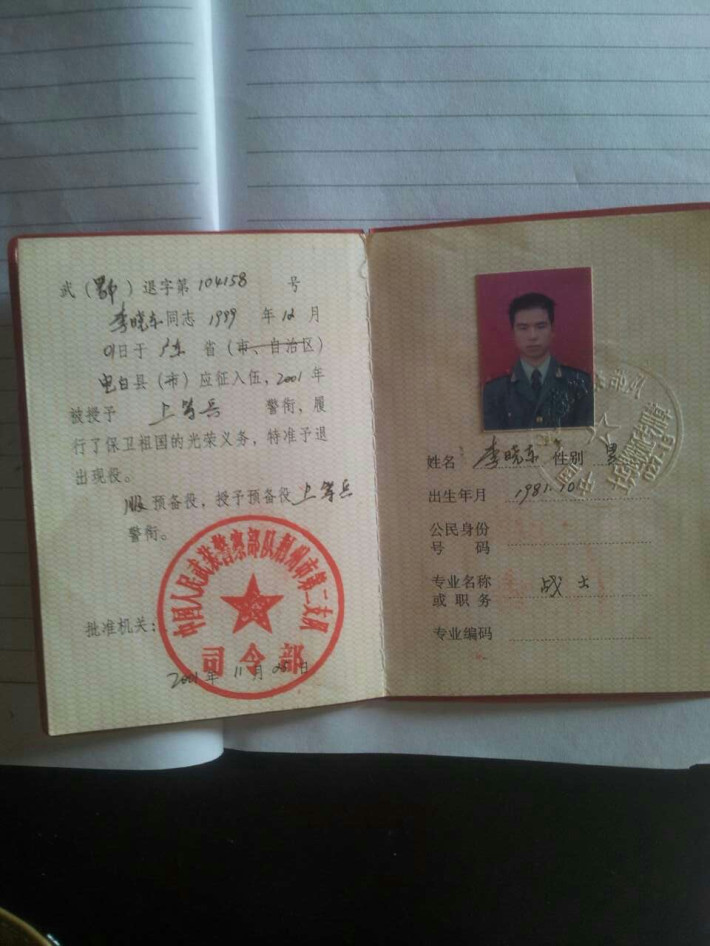 武（鄂）退字第 104158 号
李晓东同志 1999 年 12 月
01日于 广东 省（市、自治区）
电白县（市）应征入伍，2001年
被授予 上等兵 警衔，履
行了保卫祖国的光荣义务，特准予退
出现役。
服预备役，授予预备役上等兵
警衔。
中国人民武装警察部队荆州市第二支队
司令部
批准机关：
2001年 11月 25日
姓名 李晓东 性别 男
出生年月 1981.10
公民身份
号 码
专业名称 战士
或职务
专业编码